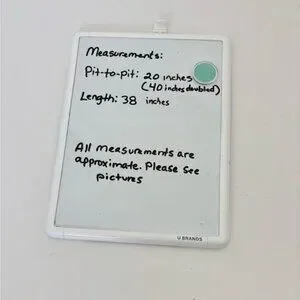 Measurements:
Pit-to-pit: 20 inches
(40 inches doubled)
Length: 38 inches
All measurements are
approximate. Please see
pictures
U BRANDS